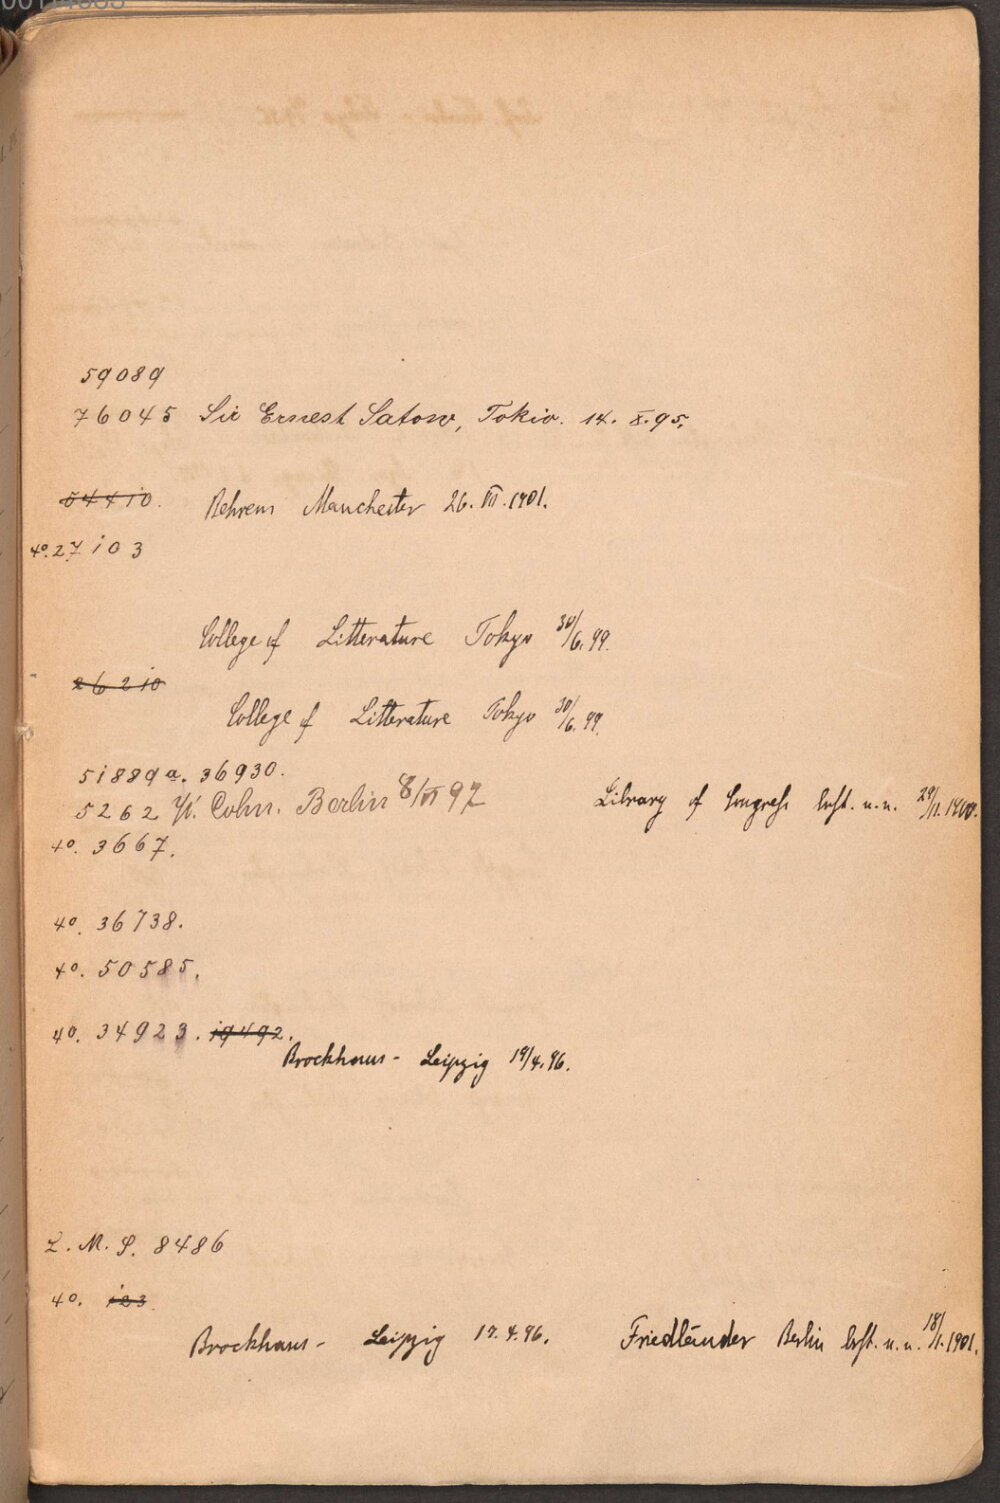 59089
76045 Sir Ernest Satow, Tokio. 14. X. 95.
54410. Behrens Manchester 26. III. 1901.
4o. 27103
College of Litterature Tokyo 30/6. 99.
26210
College of Litterature Tokyo 30/6. 99.
51889a. 36930.
5262 Cohn. Berlin 8/VI 97 Library of Congress 1900.
4o. 3667.
4o. 36738.
4o. 50585.
4o. 34923. 19492.
Brockhaus - Leipzig 19/4. 96.
L. M. S. 8486
4o. 123
Brockhaus - Leipzig 17. 4. 96. Friedländer Berlin 18/1. 1901.